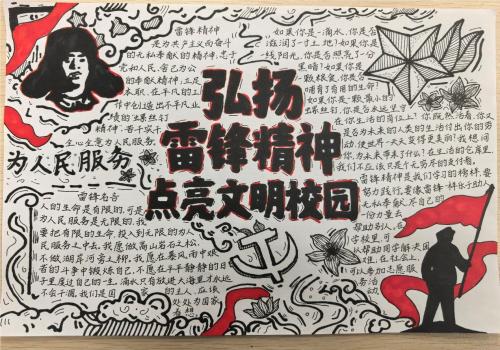 弘扬
雷锋精神
点亮文明校园
雷锋精神
是为共产主义而奋斗
的无私奉献的精神,忠于
党和人民、舍己为公
的奉献精神,立足
本职、在平凡的工
作中创造出不平凡业
绩的螺丝钉
精神,苦干实干
全心全意为人民服务
为人民服务
雷锋名言
人的生命是有限的,可是
为人民服务是无限的,我
要把有限的生命,投入到无限的为人
民服务之中去。我愿做高山岩石之松,
不做湖岸河旁之柳。我愿在暴风雨中艰
苦的斗争中锻炼自己,不愿在平平静静的日
子里度过自己的一生。滴水只有放进大海里才永远
不会干涸,我们是国
家的主人,应该
处处为国家
着想
如果你是一滴水,你是否
滋润了一寸土地?如果你是
一线阳光,你是否照亮了一分
黑暗?如果你是一
颗粮食,你是否
哺育了有用的生命?
如果你是一颗最小的
螺丝钉,你是否永远坚守
在你生活的岗位上?你既然活着,你又
是否为未来的人类的生活付出你的劳
动,使世界一天天变得更美丽?我想问
你,为未来带来了什么?在生活的仓库里,
我们不应该只是个无穷尽的支付者。
雷锋精神是我们学习的榜样,要
努力践行,要像雷锋一样乐于助人
无私奉献,尽自己的
一份力量去
帮助别人,在
学校里,可
以帮助同学解决困
难,在社会上,
可以参加志愿服
务活动